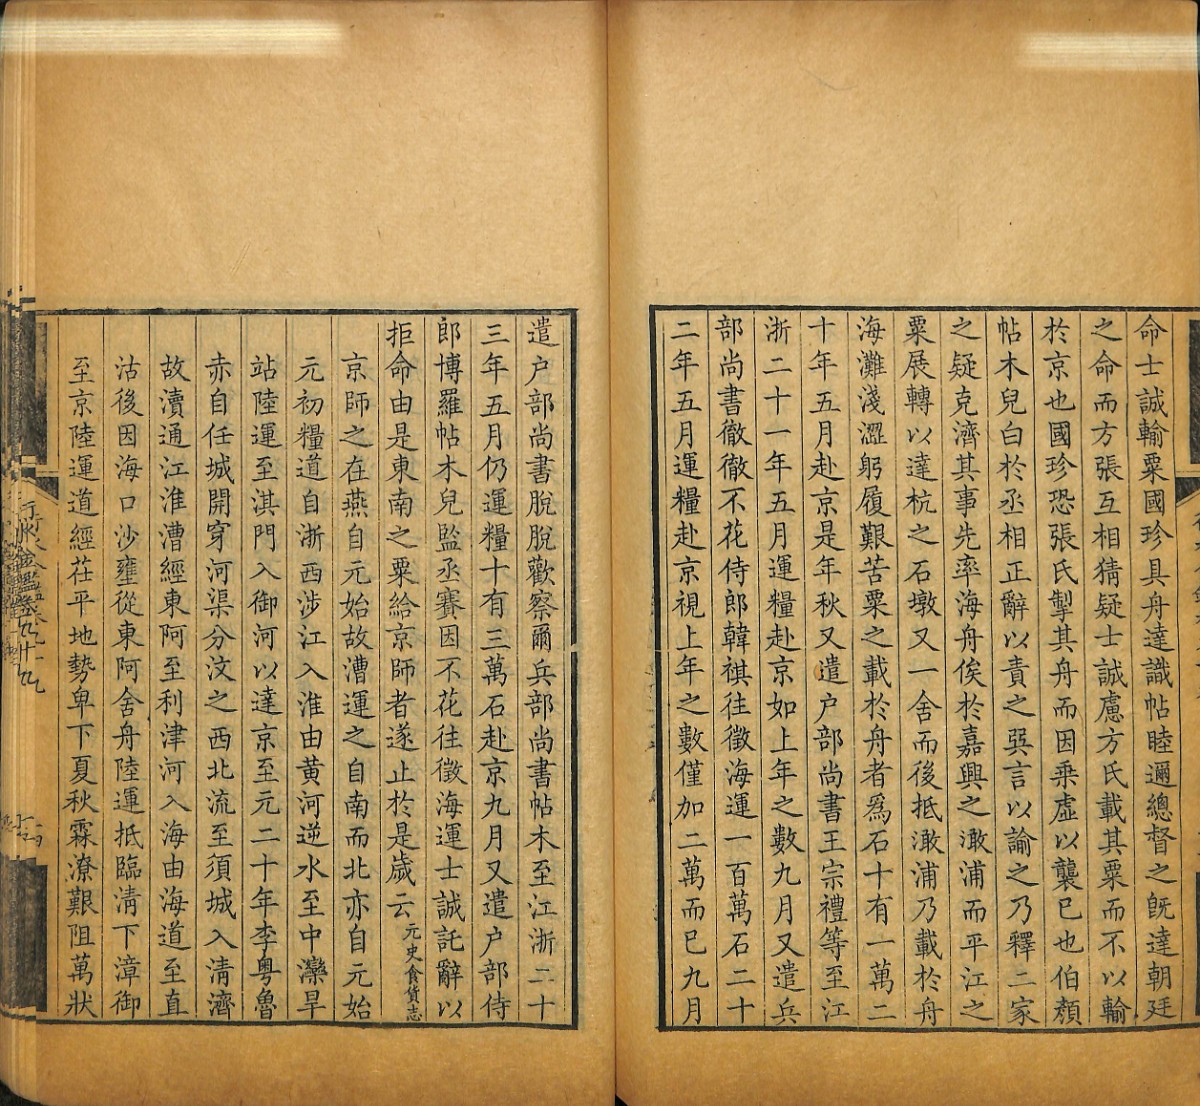 命士誠輸粟國珍具舟達識帖睦邇總督之旣達朝廷
之命而方張互相猜疑士誠慮方氏載其粟而不以輸
於京也國珍恐張氏掣其舟而因乘虛以襲已也伯顏
帖木兒白於丞相正辭以責之巽言以諭之乃釋二家
之疑克濟其事先率海舟俟於嘉興之澉浦而平江之
粟展轉以達杭之石墩又一舍而後抵澉浦乃載於舟
海灘淺澀躬履艱苦粟之載於舟者爲石十有一萬二
十年五月赴京是年秋又遣户部尚書王宗禮等至江
浙二十一年五月運糧赴京如上年之數九月又遣兵
部尚書徹徹不花侍郎韓祺往徵海運一百萬石二十
二年五月運糧赴京視上年之數僅加二萬而已九月
遣户部尚書脫脫歡察爾兵部尚書帖木至江浙二十
三年五月仍運糧十有三萬石赴京九月又遣户部侍
郎博羅帖木兒監丞賽因不花往徵海運士誠託辭以
拒命由是東南之粟給京師者遂止於是歲云元史食貨志
京師之在燕自元始故漕運之自南而北亦自元始
元初糧道自浙西涉江入淮由黄河逆水至中灤旱
站陸運至淇門入御河以達京至元二十年李粤魯
赤自任城開穿河渠分汶之西北流至須城入清濟
故瀆通江淮漕經東阿至利津河入海由海道至直
沽後因海口沙壅從東阿舍舟陸運抵臨清下漳御
至京陸運道經茌平地勢卑下夏秋霖潦艱阻萬狀
行水金鑑卷九十九